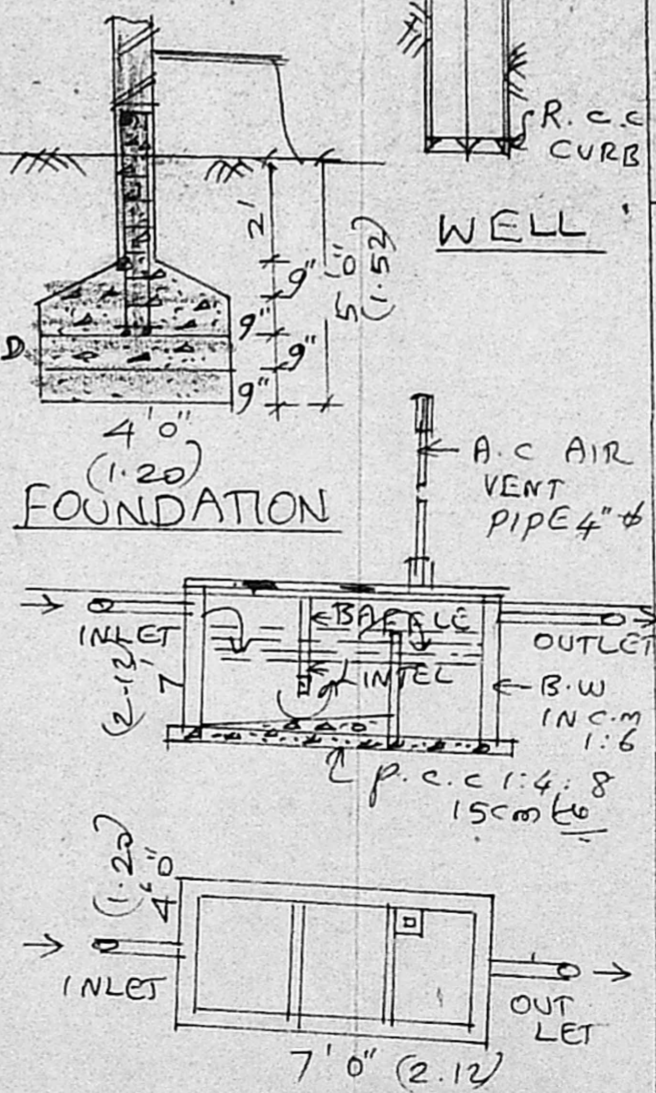 R.C.C
CURB
WELL
2'
9"
9"
9"
9"
5'0"
(1.52)
D
4'0"
(1.20)
FOUNDATION
A.C AIR
VENT
PIPE 4" ϕ
INLET
BAFFLE
OUTLET
LINTEL
7'
(2.12)
B.W
IN C.M
1:6
P.C.C 1:4:8
15cm tk
(1.20)
4'0"
INLET
OUT
LET
7'0" (2.12)